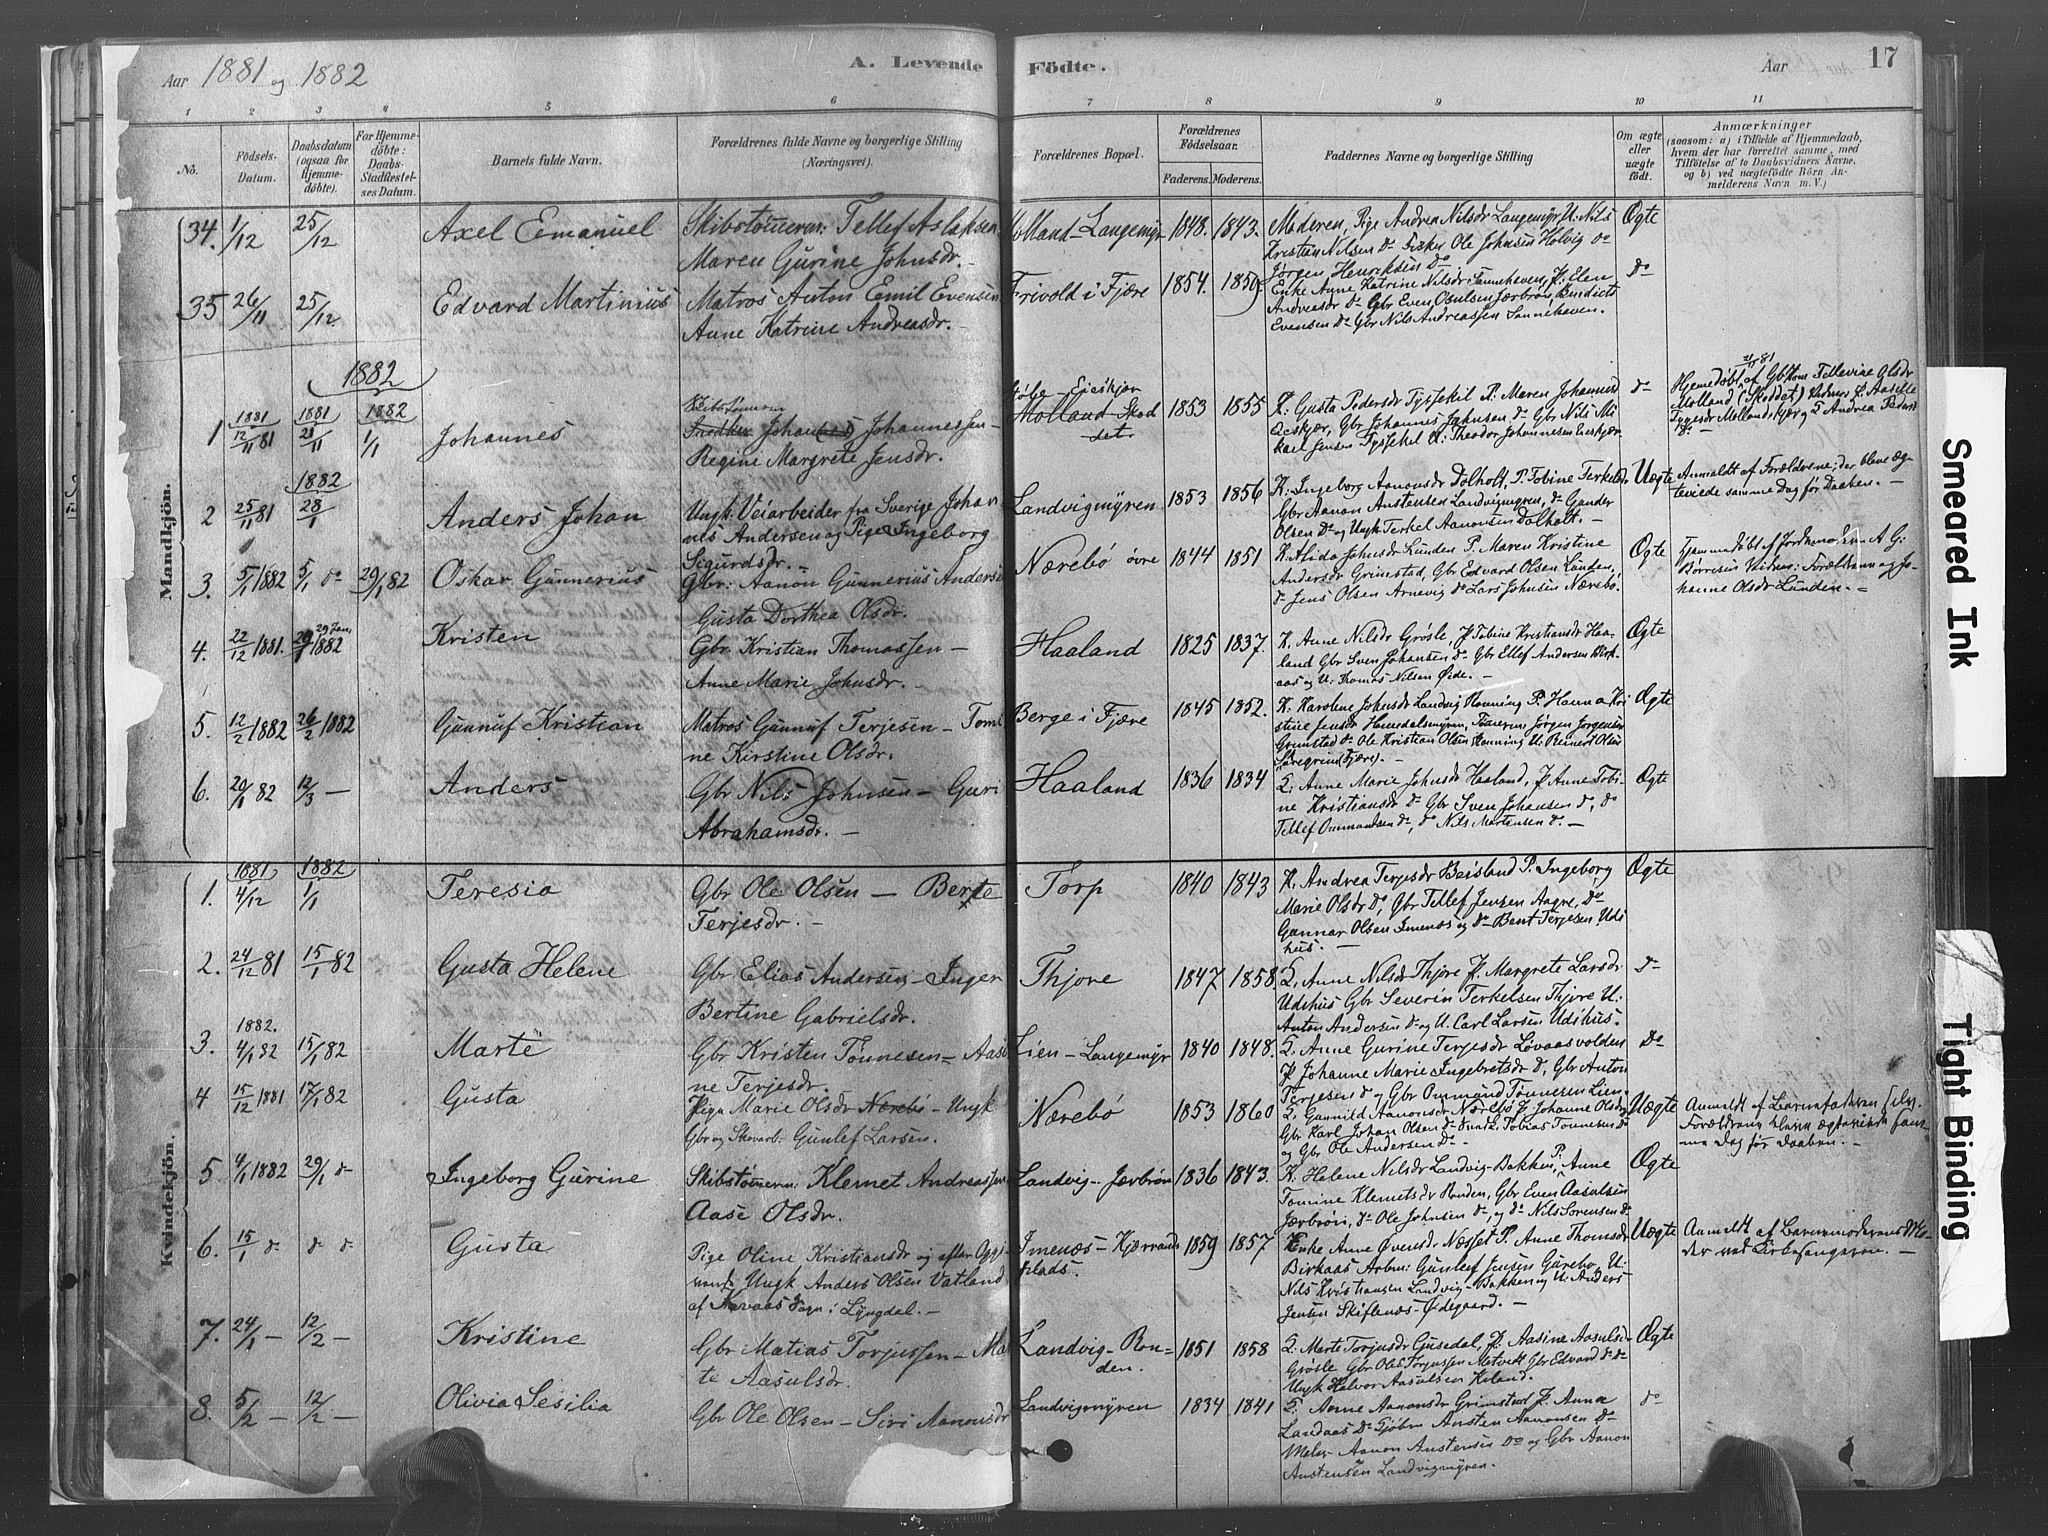 Aar 1881 og 1882
A. Levende Födte.
Aar
17
1 2 3 4 5 6 7 8 9 10 11
No.
Födsels-
Datum.
Daabsdatum
(ogsaa for
hjemme-
döbte).
For Hjemme-
döbte:
Daabs-
Stadfæstel-
ses Datum.
Barnets fulde Navn.
Forældrenes fulde Navne og borgerlige Stilling
(Næringsvei).
Forældrenes Bopæl.
Forældrenes
Födselsaar.
Faderens. Moderens.
Faddernes Navne og borgerlige Stilling
Om ægte
eller
uægte
födt.
Anmærkninger
(saasom: a) i Tilfælde af Hjemmedaab,
hvem der har forrettet samme, med
Tilföielse af to Daabsvidners Navne,
og b) ved uægtefödte Börn An-
melderens Navn m. V.)
Mandkjön.
34. 1/12 25/12 Axel Emanuel
Skibstömerm: Tellef Aslaksen
Maren Gurine Johnsdr.-
Molland-Langemyr 1848. 1843.
Moderen, Pige Andrea Nilsdr Langemyr U: Nils
Kristian Nilsen do Fisker Ole Johnsen Holvig do
Jørgen Henriksen do
Ægte
35 26/11 25/12 Edvard Martinius
Matros Anton Emil Evensen
Anne Katrine Andreasdr.-
Frivold i Fjære 1854. 1850
Enke Anne Katrine Nilsdr Tannehaven, P. Elen
Andreasdr do Gbr Even Osulsen Jærbrön, Benedicte
Evensen do Gbr Nils Andreassen Tannehaven.
do
1882
1 1881 12/11 81 1881 21/11 1882 1/1 Johannes
Skibstömerm
Johannes Johannessen-
Regine Margrete Jensdr.
Eieskjær
Molland Skod
det
1853 1855
K: Gusta Pedersdr Tyssekil P. Maren Johannesd
Eieskjær, Gbr Johannes Johnsen do Gbr Nils Mi
kael Jensen Tyssekil U: Theodor Johannesen Eieskjær
do
21/11 81
Hjemedöbt af Gbkone Tellevine Olsdr
Molland (Skoddet) Vidner P. Aaselle
Tygesdr Mollandskjær og Andrea Pedersd
do -
2 25/11 81 1882 28/1 Anders Johan
Ungk: Veiarbeider fra Sverige Johan
nis Andersen og Pige Ingeborg
Sigurdsdr.
Landvigmyren 1853 1856
K: Ingeborg Aanonsdr Dolholt, P. Tobine Terkelsd
Gbr Aanon Austensen Landvigmyren, do Gunder
Olsen do og Ungk Terkel Aanonsen Dolholt.-
Uægte
Anmeldt af Forældrene; der bleve æg-
teviede samme Dag før Daaben.-
3. 5/1 1882 5/1 do 29/1 82 Oskar Gunnerius
Gbr: Aanon Gunnerius Anders
Gusta Dorthea Olsdr.
Nærebö øvre 1844 1851
K. Alida Johnsdr Lunden P. Maren Kristine
Andersdr Grimstad, Gbr Edvard Olsen Lunden,
do Jens Olsen Arnevig do Lars Johnsen Nærebö.
Ægte
Hjemmedöbt af Jordemoderen A G:
Börresen Vidner: Forældrene og Jo-
hanne Olsdr Lunden.-
4. 22/12 1881. 29 Jan. 1882 Kristen
Gbr Kristian Thomassen -
Anne Marie Johnsdr.-
Haaland 1825 1837.
K. Anne Nilsdr Grösle, P Tobine Kristiansdr Haa-
land Gbr Sven Johansen do Gbr Ellef Andersen Birk-
aas og U: Thomas Nilsen Øide.-
Ægte
5. 12/2 1882 26/2 1882 Gunnuf Kristian
Matros Gunnuf Terjesen - Tomi
ne Kirstine Olsdr.
Berge i Fjære 1845 1852.
K. Karoline Johnsdr Landvig Rønning P. Hanna Kri
stine Jensdr Homdalsmyren, Tömerm Jörgen Jörgensen
Grimstad do Ole Kristian Olsen Rønning U: Reinert Olsen
(Fjære).
Ægte
6. 20/1 82 12/3 - Anders
Gbr Nils Johnsen - Guri
Abrahamsdr.-
Haaland 1836 1834
K: Anne Marie Johnsdr Haaland, P Anne Tobi-
ne Kristiansdr do Gbr Sven Johansen do, do
Tellef Ommundsen do, do Nils Mortensen do.-
Ægte
Kvindekjön.
1. 1881 4/12 1882 1/1 Teresia
Gbr Ole Olsen - Berte
Terjesdr.-
Torp 1840 1843
K. Andrea Terjesdr Beisland P. Ingeborg
Marie Olsdr do, Gbr Tellef Jensen Aagre, do
Gunnar Olsen Imenes og do Bent Terjesen Udi
hus.-
Ægte
2. 24/12 81 15/1 82 Gusta Helene
Gbr Elias Andersen - Inger
Bertine Gabrielsdr.
Thjore 1847 1858
K. Anne Nilsdr Thjore P. Margrete Larsdr
Udihus Gbr Severin Terkelsen Thjore U:
Anton Andersen do og U. Carl Larsen Udihus.
do
3. 1882. 4/1 82 15/1 82 Marte
Gbr Kristen Tönnesen - Aaso
ne Terjesdr.
Lien - Langemyr 1840 1848.
K. Anne Gurine Terjesdr Lovaasvolden
P Johanne Marie Ingebretsdr do, Gbr Anton
Terjesen do og Gbr Ommund Tönnesen Lien.
do
4 15/12 1881 17/1 82 Gusta
Pige Marie Olsdr Nærebö - Ungk
Gbr og Skovarb: Gunlef Larsen.
Nærebö 1853 1860
K. Gunnild Aanonsdr Nærebö P Johanne Olsdr
Gbr Karl Johan Olsen do Tobias Tönnesen do
og Gbr Ole Andersen do
Uægte
Anmeldt af Barnefaderen selv.
Forældrene bleve ægteviede sam-
me Dag før Daaben.-
5 4/1 1882 29/1 do Ingeborg Gurine
Skibstömerm: Klemet Andreassen
Aase Olsdr.
Landvig - Jærbrön 1836 1843.
K. Helene Nilsdr Landvig-Bakken, P. Anne
Tomine Klemetsdr Ronden, Gbr Even Aasulsen
Jærbrön, do Ole Johnsen do, og do Nils Sorensen do
Ægte
6. 15/1 do do do Gusta
Pige Oline Kristiansdr og efter Opgi
vend. Ungk Anders Olsen Vatland
af Kvaas Sogn i Lyngdal.-
Imenæs - Kjærvands
plads. 1859 1857
Enke Anne Øvensdr Næsset P. Anne Thomsdr
Birkaas Arbm: Gunlef Jensen Gurebo, U:
Nils Kristiansen Landvig-Bakken og U: Anders
Jensen Skiftenæs-Ødegaard.-
Uægte
Anmeldt af Barnemoderens Mo-
der ved Kirkesangeren.-
7. 24/1 - 12/2 - Kristine
Gbr Matias Torjussen - Mar
te Aasulsdr.
Landvig-Ron-
den. 1851 1858
K. Marte Torjusdr Gusedal, P. Aasine Aasulsdr
Grösle Gbr Ole Torjussen Metvedt Gbr Edvard do do
Ungk Halvor Aasulsen Kiland.
Ægte
8. 5/2 - 12/2 - Olivia Sesilia
Gbr Ole Olsen - Siri Aanonsdr
Landvigmyren 1834 1841
K. Anne Aanonsdr Grimstad P. Anna
Landaas do Austen Aanonsen do
Maler Aanon Austensen do og Gbr Aanon
Austensen Landvigmyren.
do
Smeared Ink
Tight Binding